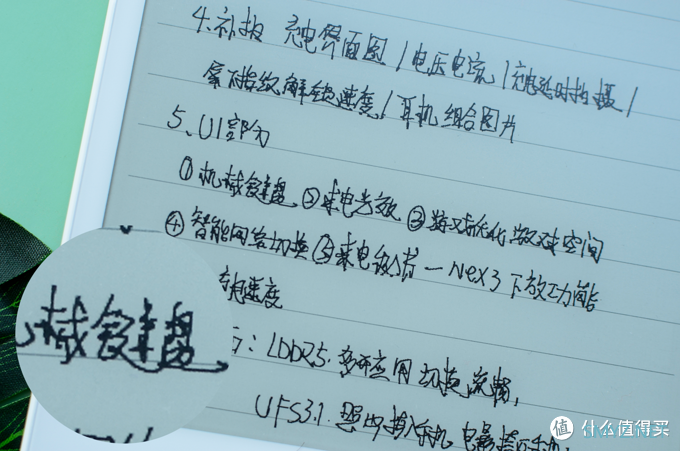 4.补拍 充电界面图/电压电流/充电延时拍摄/
屏下指纹解锁速度/耳机组合图片
5、UI部分
①机械键盘 ②来电光效 ③游戏优化 游戏空间
④智能网络切换 ⑤来电 一Nex3下放功能
充电速度
:LDDR5.多开应用切换流畅,
UFS3.1.照片 手机 电影
械键盘
值 什么值得买